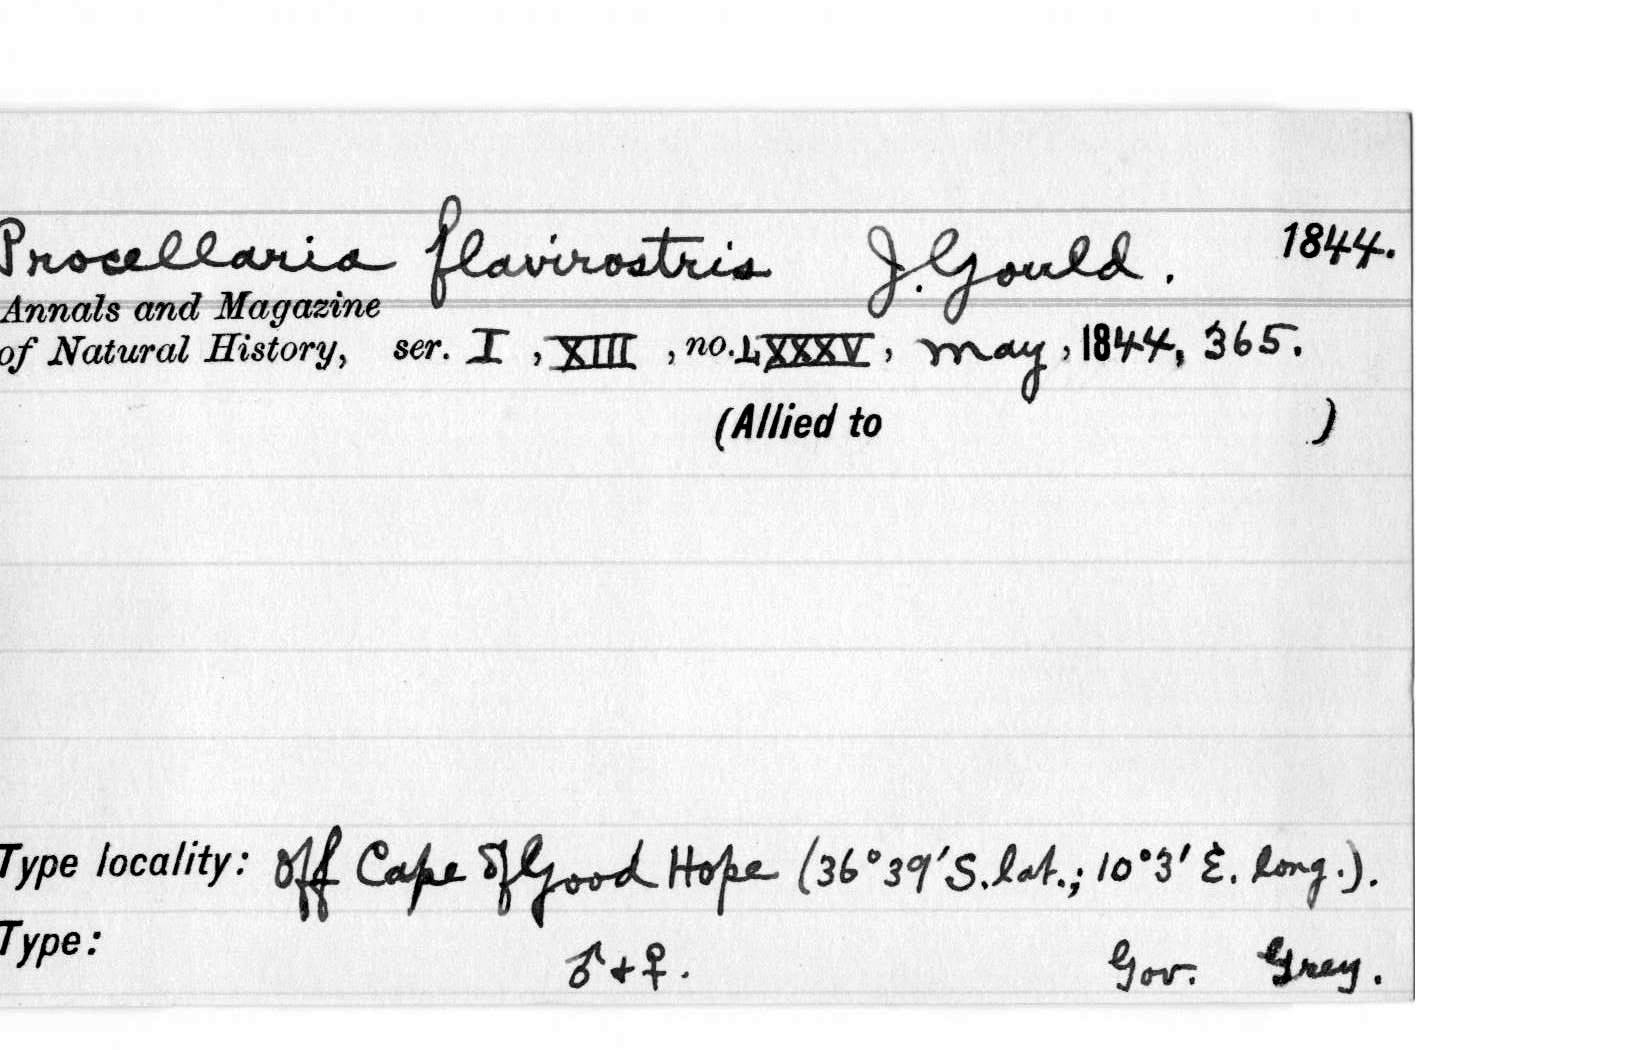 Procellaria flavirostris J. Gould. 1844.
Annals and Magazine
of Natural History, ser. I, XIII, no. LXXXV, May, 1844, 365.
(Allied to )
Type locality: off Cape of Good Hope (36°39′ S. lat.; 10°3′ E. long.).
Type: ♂ + ♀. Gov. Grey.